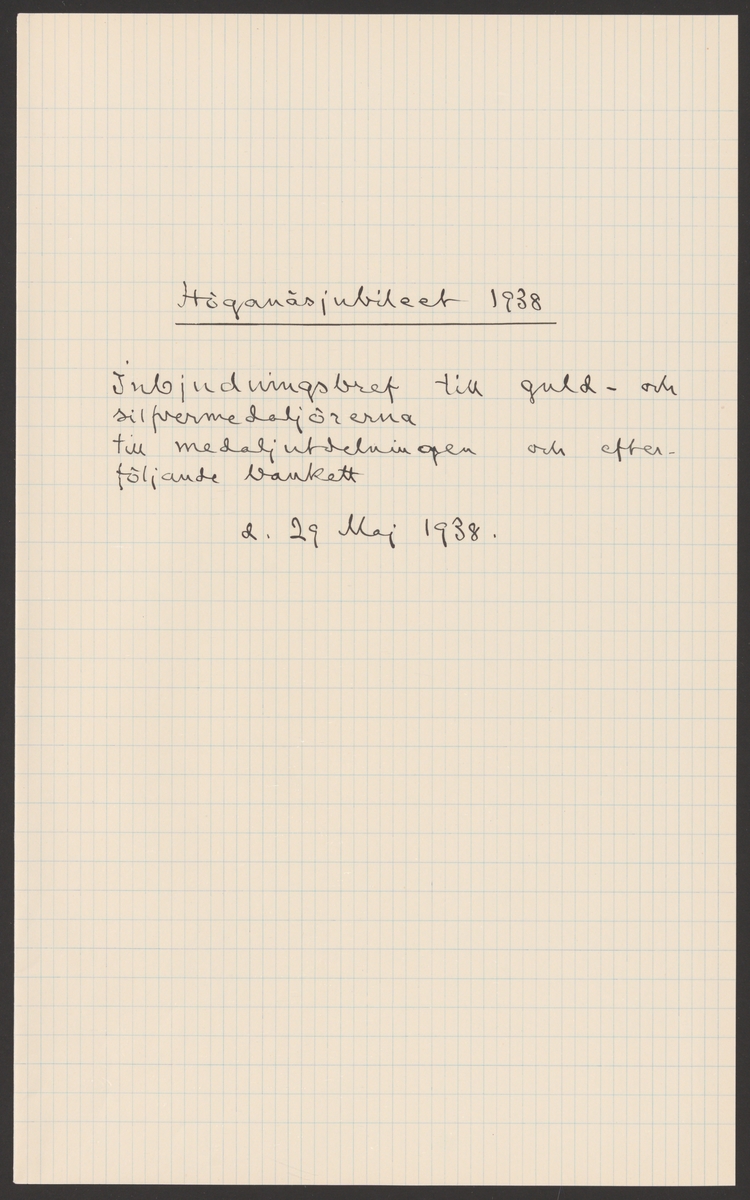 Höganäsjubileet 1938
Inbjudningsbref till guld- och
silfvermedaljörerna
till medaljutdelningen och efter-
följande bankett
d. 29 Maj 1938.